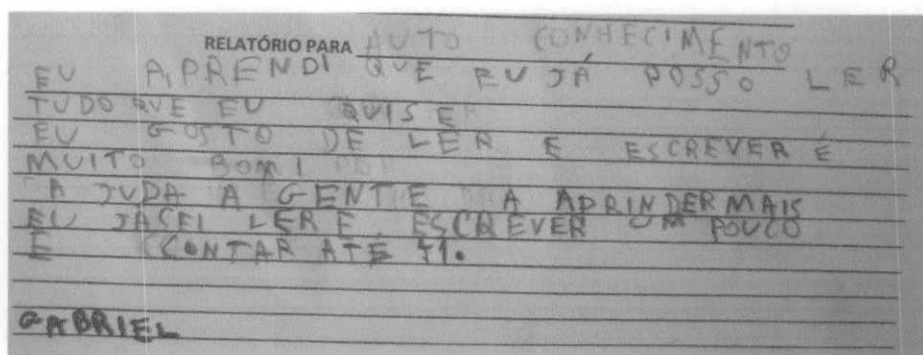 RELATÓRIO PARA AUTO CONHECIMENTO
EU APRENDI QUE EU JÁ POSSO LER
TUDO QUE EU QUISER
EU GOSTO DE LER E ESCREVER É
MUITO BOM
AJUDA A GENTE A APRINDER MAIS
EU JA CEI LER E ESCREVER UM POUCO
E CONTAR ATÉ 41.
GABRIEL